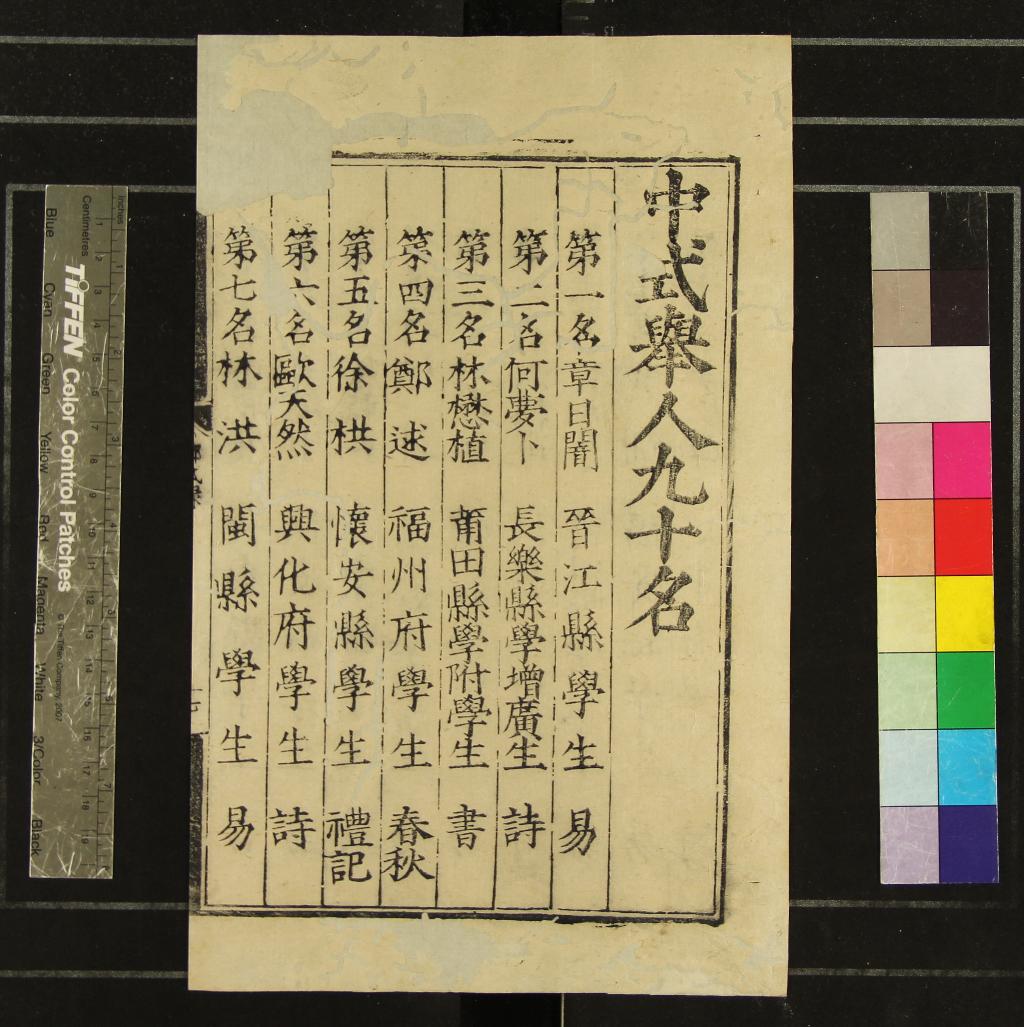 中式舉人九十名
第一名章日闇 晉江縣學生 易
第二名何夢卜 長樂縣學增廣生 詩
第三名林懋植 莆田縣學附學生 書
第四名鄭逑 福州府學生 春秋
第五名徐栱 懷安縣學生 禮記
第六名歐天然 興化府學生 詩
第七名林洪 閩縣學生 易
TIFFEN Color Control Patches
© The Tiffen Company, 2007
Inches
Centimetres
Blue Cyan Green Yellow Red Magenta White 3/Color Black